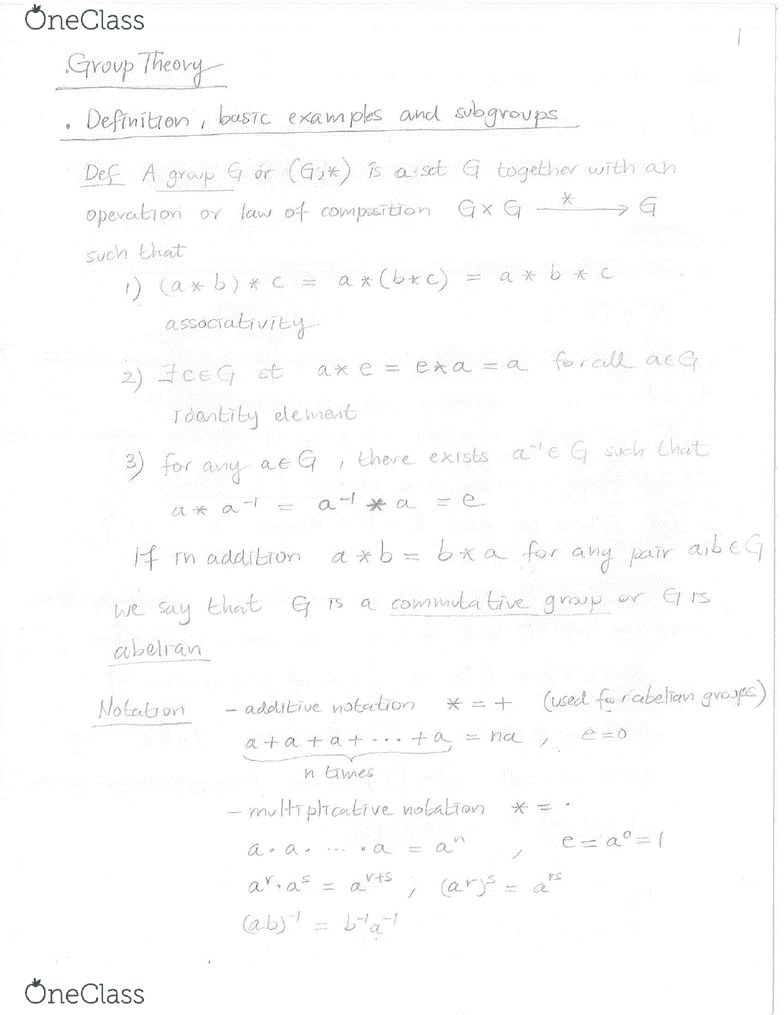 OneClass
1
Group Theory
. Definition, basic examples and subgroups
Def A group G or (G,*) is a set G together with an
operation or law of composition G × G —*→ G
such that
1) (a * b) * c = a * (b * c) = a * b * c
associativity
2) ∃ e ∈ G st a * e = e * a = a for all a ∈ G
Identity element
3) for any a ∈ G , there exists a⁻¹ ∈ G such that
a * a⁻¹ = a⁻¹ * a = e
If in addition a * b = b * a for any pair a,b ∈ G
we say that G is a commutative group or G is
abelian
Notation - additive notation * = + (used for abelian groups)
a + a + a + ... + a = na , e = 0
n times
- multiplicative notation * = ·
a · a · ... · a = aⁿ , e = a⁰ = 1
aʳ · aˢ = aʳ⁺ˢ , (aʳ)ˢ = aʳˢ
(ab)⁻¹ = b⁻¹a⁻¹
OneClass